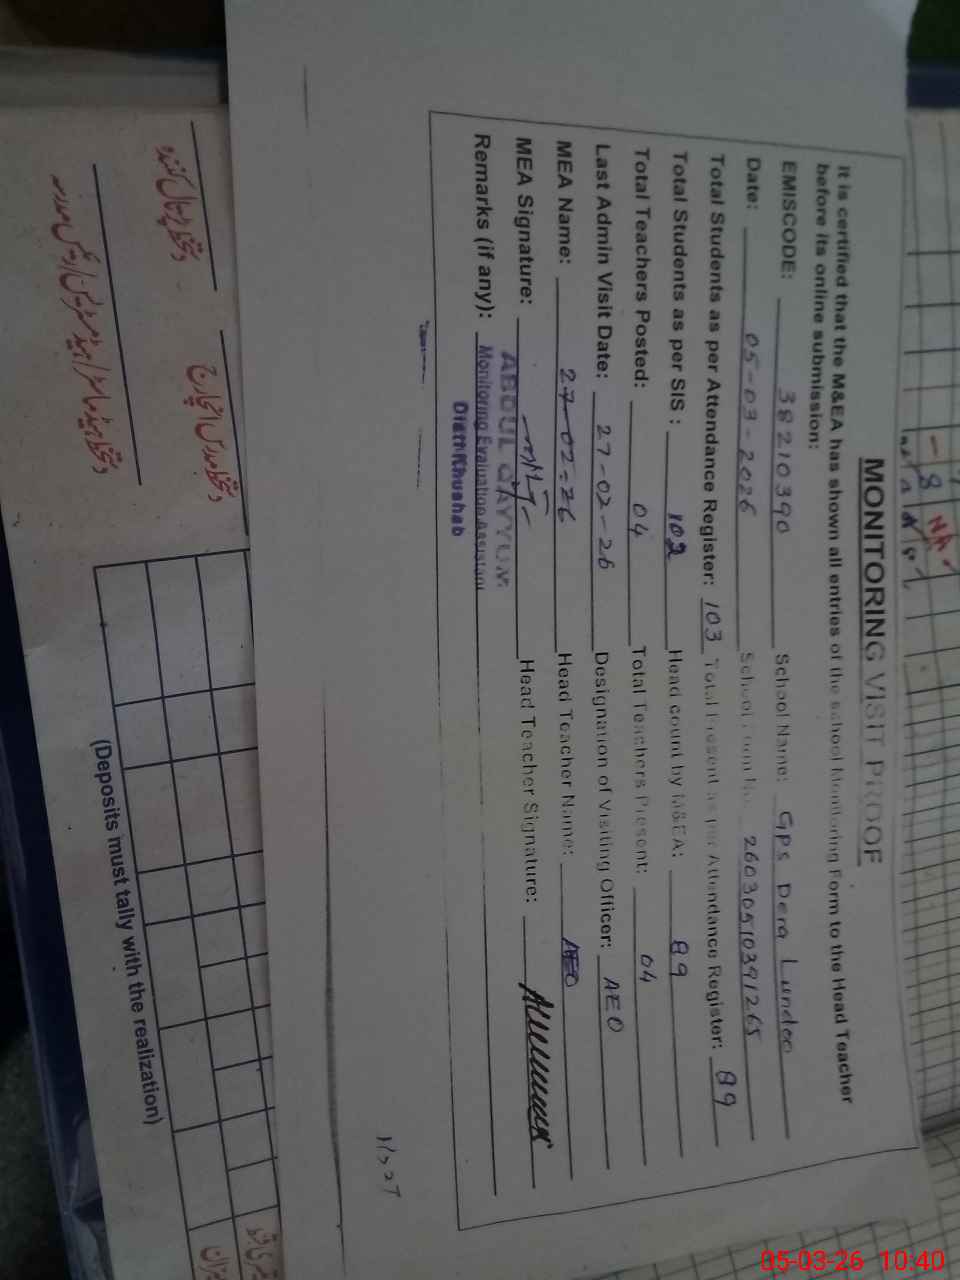 MONITORING VISIT PROOF
It is certified that the M&EA has shown all entries of the school Monitoring Form to the Head Teacher
before its online submission:
EMISCODE: 38210390 School Name: GPS Dera Lundoo
Date: 05-03-2026 School Form No. 26030510391265
Total Students as per Attendance Register: 103 Total Present as per Attendance Register: 89
Total Students as per SIS: 102 Head count by M&EA: 89
Total Teachers Posted: 04 Total Teachers Present: 04
Last Admin Visit Date: 27-02-26 Designation of Visiting Officer: AEO
MEA Name: 27-02-26 Head Teacher Name: AEO
MEA Signature: Head Teacher Signature:
ABDUL QAYYUM
Remarks (if any): Monitoring Evaluation Assistant
Distt Khushab
دستخط پڑتال کنندہ
دستخط مدرس انچارج
دستخط ہیڈ ماسٹر / ہیڈ مسٹریس / رئیس مدرسہ
(Deposits must tally with the realization)
میزان
- 8
NA
05-03-26 10:40